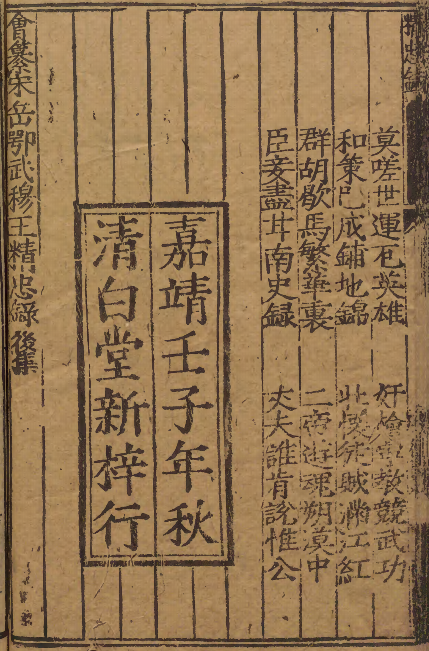 精忠錄
莫嗟世運厄英雄
奸檜教競武功
和策已成鋪地錦
此懷徒賦滿江紅
群胡歇馬繁華裏
二帝遊魂朔漠中
臣妾盡甘南史錄
丈夫誰肯說惟公
嘉靖壬子年秋
清白堂新梓行
會纂宋岳鄂武穆王精忠錄後集